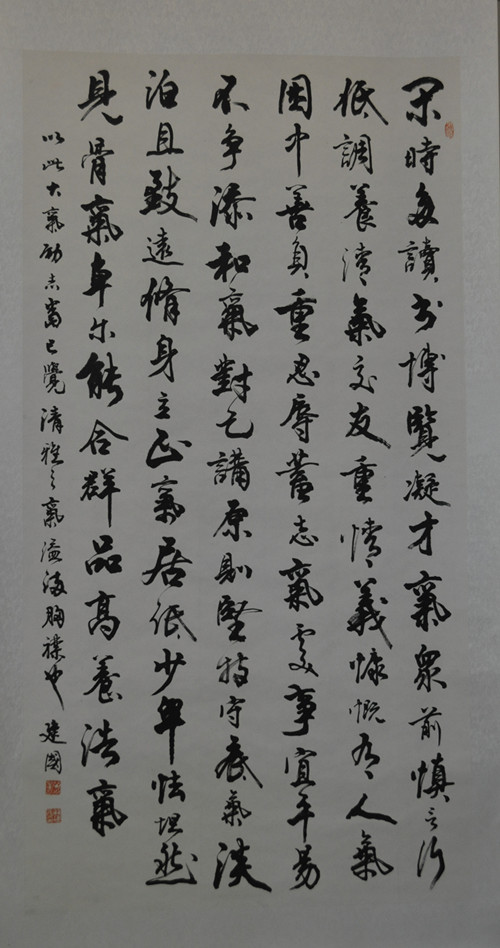 閑時多讀書博覽凝才氣眾前慎言行
低調養清氣交友重情義慷慨有人氣
困中善負重忍辱蓄志氣處事宜平易
不爭添和氣對己講原則堅持守底氣淡
泊且致遠脩身立正氣居低少卑怯坦然
見骨氣卓爾能合群品高養浩氣
以此大氣勵志篇已覺清雅之氣溢滿胸襟也 建國